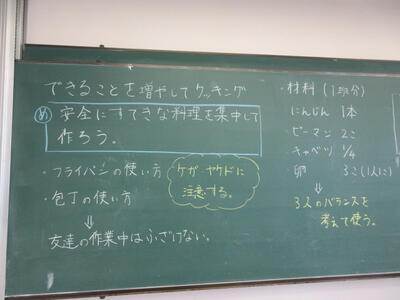 できることを増やしてクッキング
め 安全にすてきな料理を集中して
作ろう。
・フライパンの使い方
・包丁の使い方
⇓
友達の作業中はふざけない。
ケガ・ヤケドに
注意する。
・材料(1班分)
にんじん 1本
ピーマン 2こ
キャベツ 1/4
卵 3こ(1人1こ)
⇓
3人のバランスを
考えて使う。